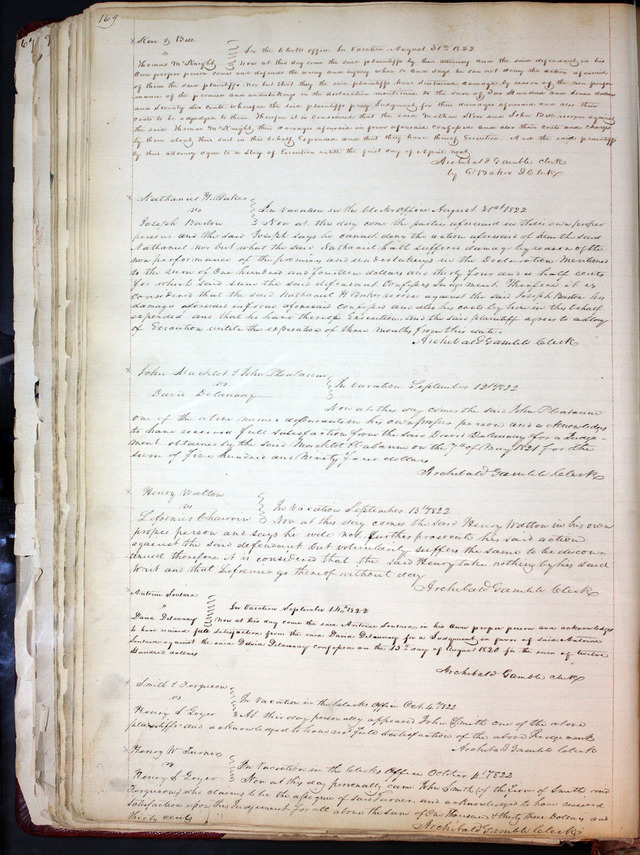 169
Kerr & Bell
In the Clerks office In Vacation August 31st 1822
Thomas McKnight Now at this day come the said plaintiffs by their attorney and the said defendant in his
Own proper person comes and defends the wrong and injury when &c and says he can not deny the action aforesaid
of them the said plaintiffs nor but that they the said plaintiffs have sustained damages by reason of the non perfor
mance of the promises and undertakings in the declaration mentioned to the sum of One Hundred and dollars
and Seventy Six Cents, wherefore the said plaintiffs pray Judgment for their damages aforesaid and also their
costs to be adjudged to them Therefore it is Considered that the said Mathew Kerr and John Bell recover against
the said Thomas McKnight their damages aforesaid in form aforesaid confessed and also their costs and charges
by them about their suit in this behalf Expended and that they have thereof Execution. And the said plaintiffs
by their attorney agree to a Stay of Execution untill the first day of April next
Archibald Gamble clerk
by D Clerk
Nathaniel H.
vs In Vacation in the Clerks Office August 31st 1822
Joseph Barton Now at this day come the parties aforesaid in their own proper
persons and the said Joseph says he cannot deny the action aforesaid of him the said
Nathaniel nor but what the said Nathaniel hath suffered damage by reason of the
non performance of the promises and undertakings in the Declaration Mentioned
to the sum of One hundred and fourteen dollars and thirty four and a half cents
for which said sum the said defendant Confesses Judgment. Therefore it is
considered that the said Nathaniel H recover against the said Joseph Barton his
damages aforesaid in form aforesaid confessed and also his costs by him in this behalf
expended and that he have thereof Execution, and the said plaintiff agrees to a stay
of Execution untill the expiration of three months from this date.
Archibald Gamble Clerk
John &
vs In Vacation September 12th 1822
David Delaunay
Now at this day comes the said John
one of the above named defendants in his own proper person and acknowledges
to have received full satisfaction from the said David Delaunay for a Judge
ment obtained by the said on the 7th of May 1821 for the
sum of Five hundred and Ninety Four dollars
Archibald Gamble Clerk
Henry Watton
vs In Vacation September 13th 1822
Chauvin Now at this day comes the said Henry Watton in his own
proper person and says he will not further prosecute his said action
against the said defendant but voluntarily suffers the same to be discon
tinued therefore it is considered that the said Henry take nothing by his said
writ and that go thereof without day
Archibald Gamble Clerk
Antoine
In Vacation September 14th 1822
David Delaunay Now at this day came the said Antoine in his Own proper person and acknowledges
to have received full satisfaction from the said David Delaunay for a Judgement in favor of said Antoine
against the said David Delaunay confessed on the 23d day of August 1820 for the sum of twelve
Hundred dollars
Archibald Gamble clerk
Smith & Ferguson
vs In Vacation in the Clerks Office Oct. 4th 1822
Henry S Geyer At this day personally appeared John Smith one of the above
plaintiffs and acknowledged to have recd full Satisfaction of the above Judgement
Archibald Gamble Clerk
Henry W Turner
vs In Vacation in the Clerks Office October 4th 1822
Henry S Geyer Now at this day personally came John Smith (of the Firm of Smith and
Ferguson) who claims to be the assignee of said Turner and acknowledged to have received
Satisfaction upon this Judgement for all above the sum of One thousand & thirty three Dollars and
thirty cents
Archibald Gamble Clerk